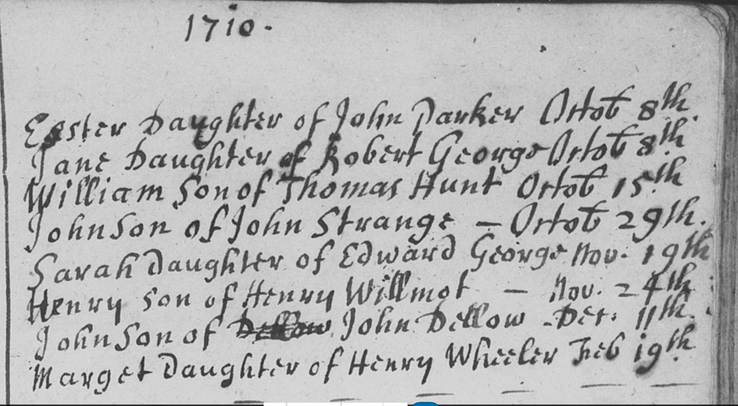 1710.
Ester Daughter of John Parker Octob 8th.
Jane Daughter of Robert George Octob 8th
William Son of Thomas Hunt Octob 15th
John Son of John Strange – Octob 29th.
Sarah Daughter of Edward George Nov. 19th
Henry Son of Henry Willmot – Nov. 24th
John Son of Dellow John Dellow - Dec. 11th.
Marget Daughter of Henry Wheeler Feb 19th